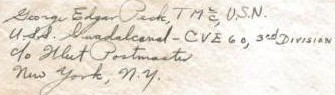 George Edgar Peck, TM2c, U.S.N.
U.S.S. Guadalcanal - CVE 60, 3rd Division
c/o Fleet Postmaster
New York, N.Y.